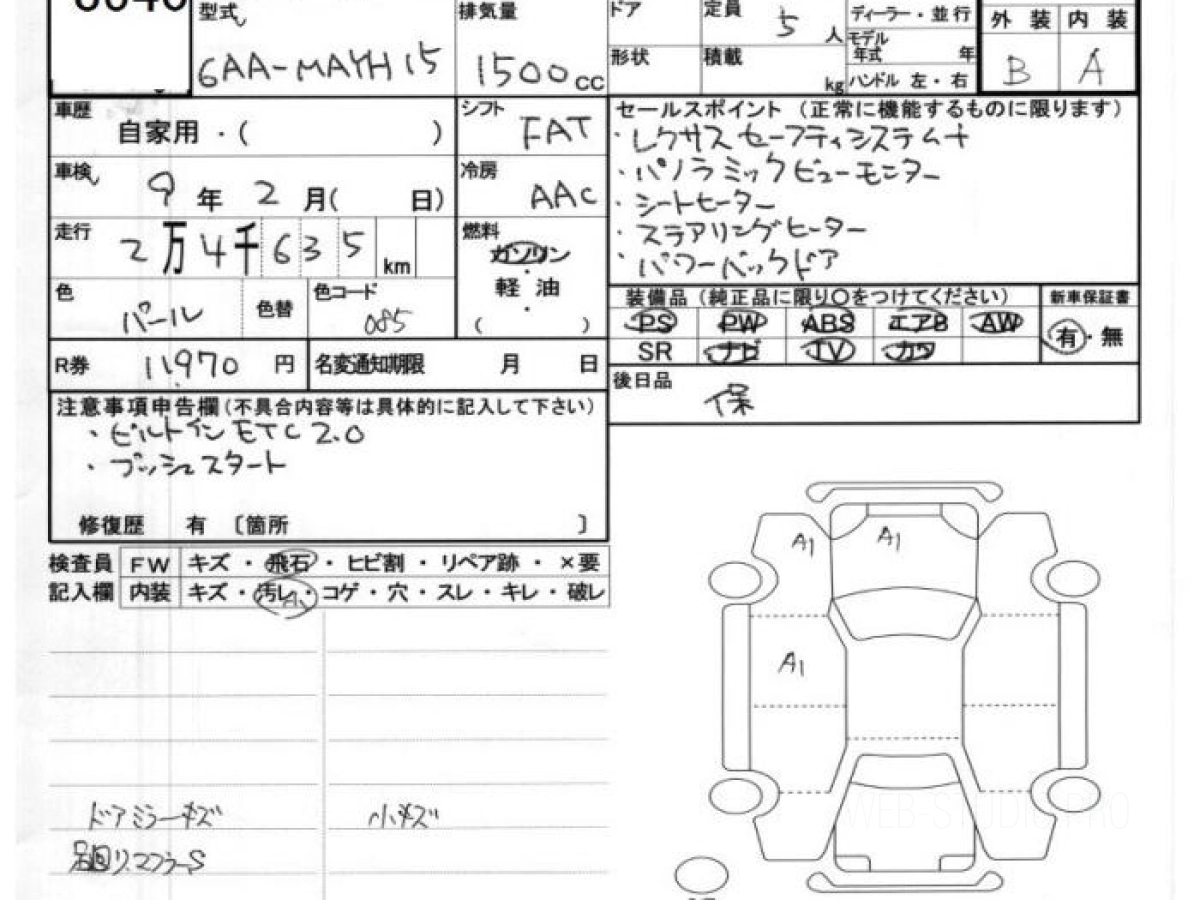 型式
6AA-MAYH15
排気量
1500cc
ドア
形状
定員 5人
積載 kg
ディーラー・並行
モデル年式 年
ハンドル 左・右
外装 内装
B A
車歴
自家用・( )
シフト
FAT
車検
9年2月( 日)
冷房
AAC
走行
2万4千635km
燃料
ガソリン
・
軽油
・
( )
色
パール
色替
色コード
085
R券 11,970円
名変通知期限 月 日
セールスポイント(正常に機能するものに限ります)
・レクサスセーフティシステム+
・パノラミックビューモニター
・シートヒーター
・ステアリングヒーター
・パワーバックドア
装備品(純正品に限り〇をつけてください)
新車保証書
PS PW ABS エアB AW
SR ナビ TV カワ
有・無
後日品
保
注意事項申告欄(不具合内容等は具体的に記入して下さい)
・ビルトインETC2.0
・プッシュスタート
修復歴 有 〔箇所 〕
検査員
記入欄
FW キズ・飛石・ヒビ割・リペア跡・×要
内装 キズ・汚レ・コゲ・穴・スレ・キレ・破レ
A1
A1
A1
ドアミラーキズ
小キズ
足廻リ、マフラーS
WEB-STUDIO.PRO